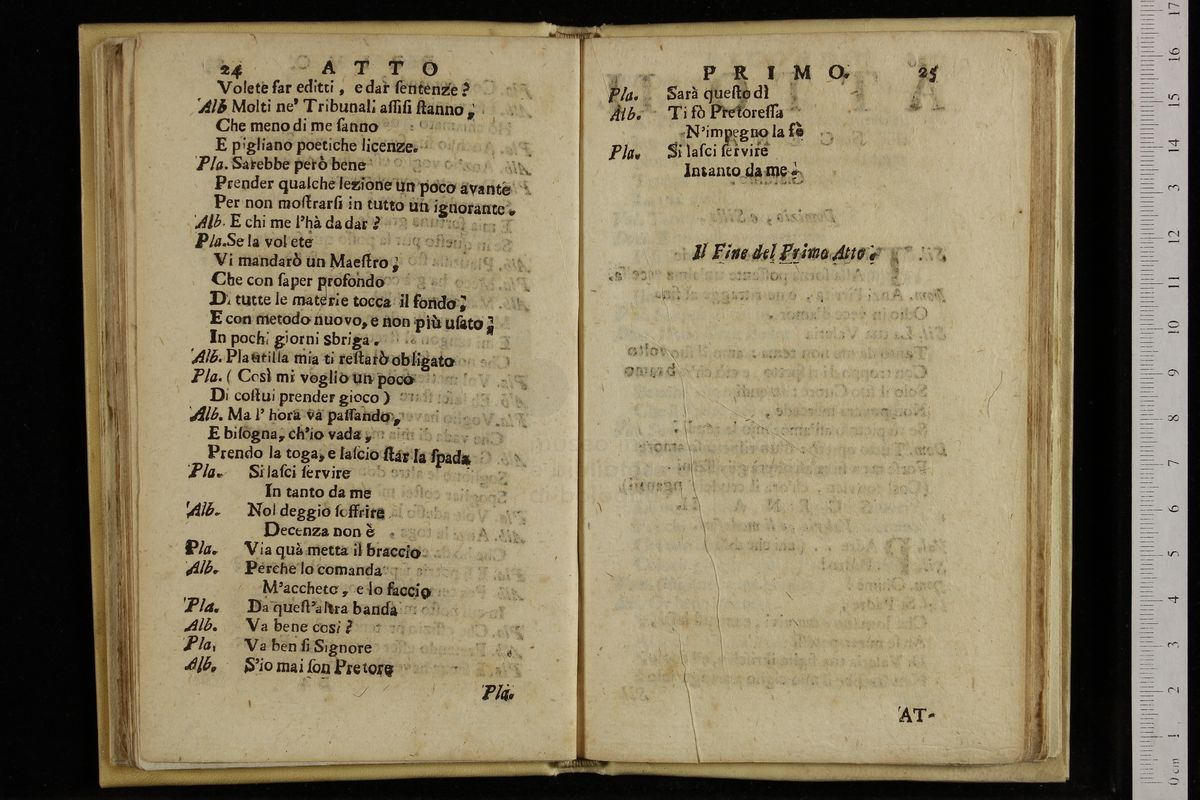 24 ATTO
Volete far editti, e dar ſentenze?
Alb Molti ne' Tribunali aſſiſi ſtanno,
Che meno di me ſanno
E pigliano poetiche licenze.
Pla. Sarebbe però bene
Prender qualche lezione un poco avante
Per non moſtrarſi in tutto un ignorante.
Alb. E chi me l'hà da dar?
Pla. Se la volete
Vi mandarò un Maeſtro;
Che con ſaper profondo
Di tutte le materie tocca il fondo;
E con metodo nuovo, e non più uſato;
In pochi giorni sbriga.
Alb. Plautilla mia ti reſtarò obligato
Pla. (Così mi voglio un poco
Di coſtui prender gioco)
Alb. Ma l' hora và paſſando,
E biſogna, ch'io vada,
Prendo la toga, e laſcio ſtár la ſpada
Pla. Si laſci ſervire
In tanto da me
Alb. Nol deggio ſoffrire
Decenza non è
Pla. Via quà metta il braccio
Alb. Perche lo comanda
M'accheto, e lo faccio
Pla. Da queſt'altra banda
Alb. Va bene così?
Pla, Va ben ſi Signore
Alb. S'io mai ſon Pretore
Pla.
PRIMO. 25
Pla. Sarà queſto dì
Alb. Ti fò Pretoreſſa
N'impegno la fè
Pla. Si laſci ſervire
Intanto da me.
Il Fine del Primo Atto.
AT-